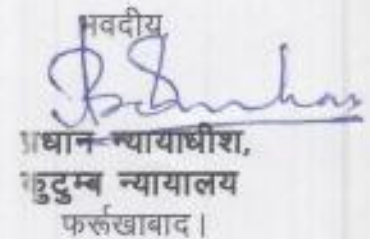 भवदीय
प्रधान न्यायाधीश,
कुटुम्ब न्यायालय
फर्रूखाबाद।